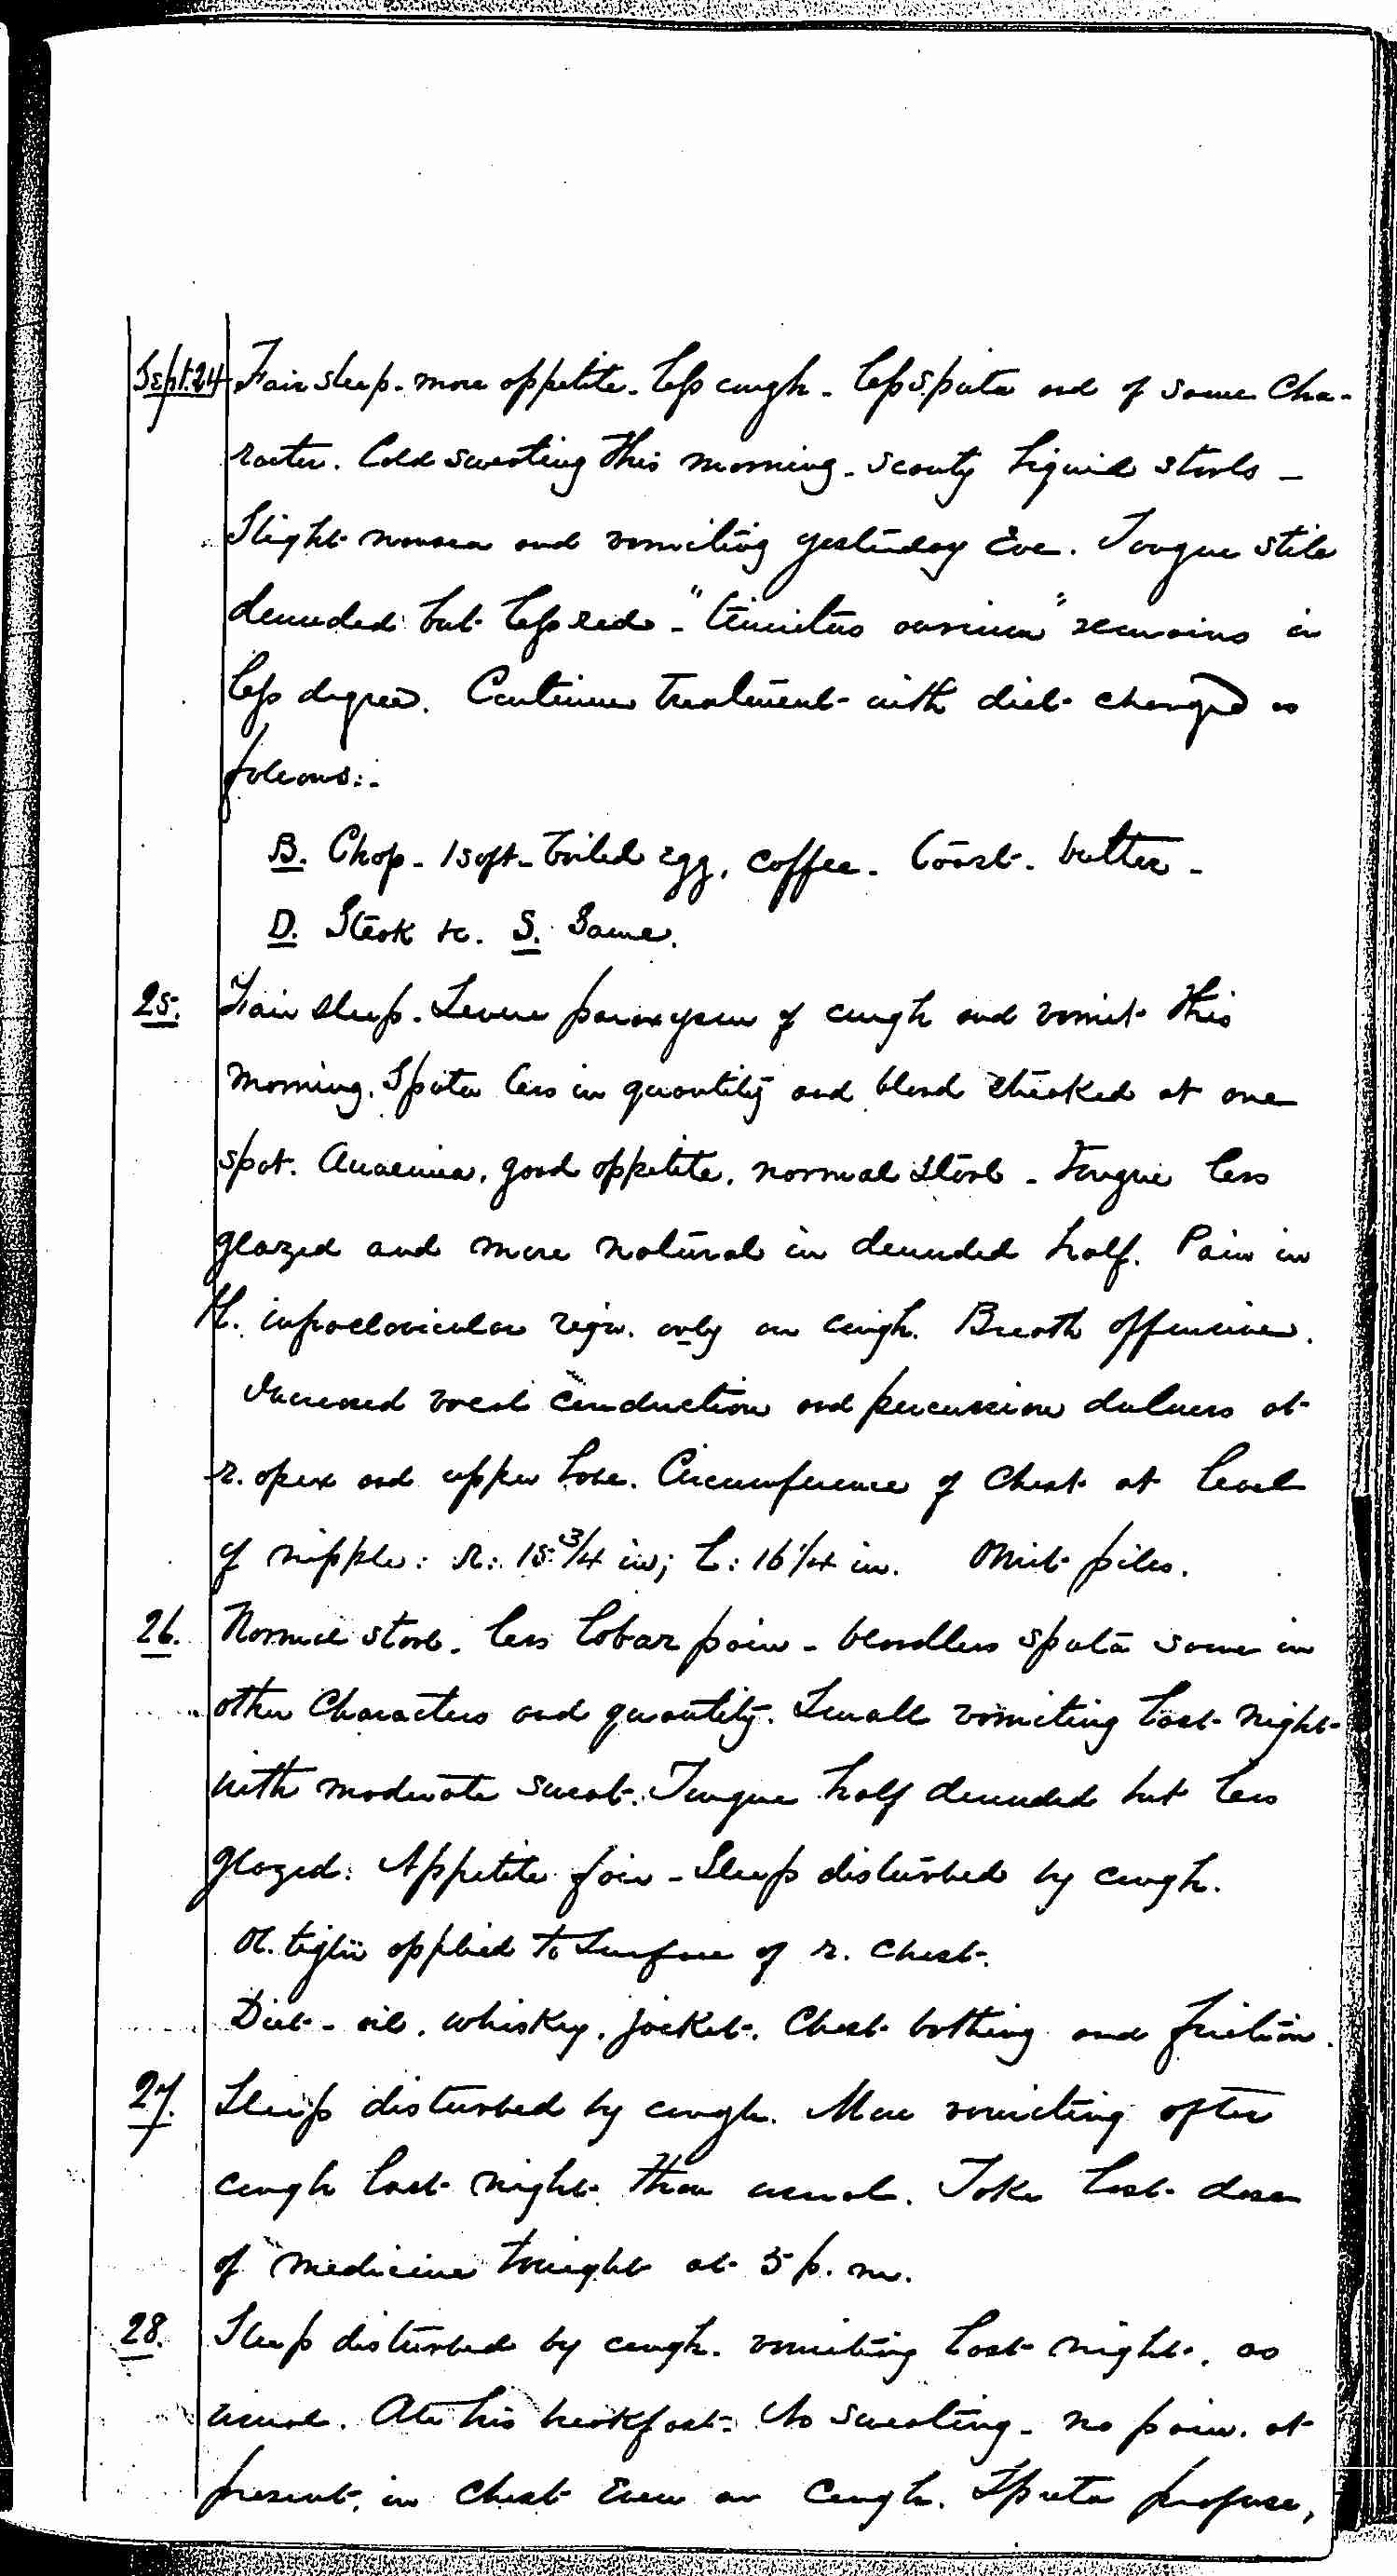 Sept. 24 Fair sleep. more appetite. less cough. less sputa and of same cha-
racter. Cold sweating this morning. scanty liquid stools –
Slight nausea and vomiting yesterday Eve. Tongue still
denuded but less red – "tinnitus aurium" remains in
less degree. Continue treatment with diet changed as
follows:-
B. Chop. 1 soft-boiled egg, coffee. toast. butter –
D. Steak &c. S. Same.
25. Fair sleep. Severe paroxysm of cough and vomit this
morning. Sputa less in quantity and blood streaked at one
spot. Anaemia, good appetite, normal stool – tongue less
glazed and more natural in denuded half. Pain in
r. infraclavicular regn. only on cough. Breath offensive.
Increased vocal conduction and percussion dulness at
r. apex and upper lobe. Circumference of Chest at level
of nipple: R: 15 3/4 in; L: 16 1/4 in. Omit pills.
26. Normal stool. less lobar pain – bloodless sputa same in
other Characters and quantity. Small vomiting last night
with moderate sweat. Tongue half denuded but less
glazed. Appetite fair – Sleep disturbed by cough.
Ol. tiglii applied to Surface of r. Chest.
Diet – oil. whiskey. jacket. Chest bathing and friction.
27. Sleep disturbed by cough. More vomiting after
cough last night than usual. Take last dose
of medicine tonight at 5 p.m.
28. Sleep disturbed by cough. vomiting last night. as
usual. Ate his breakfast. No sweating – no pain. at
present, in chest even on cough. Sputa profuse,